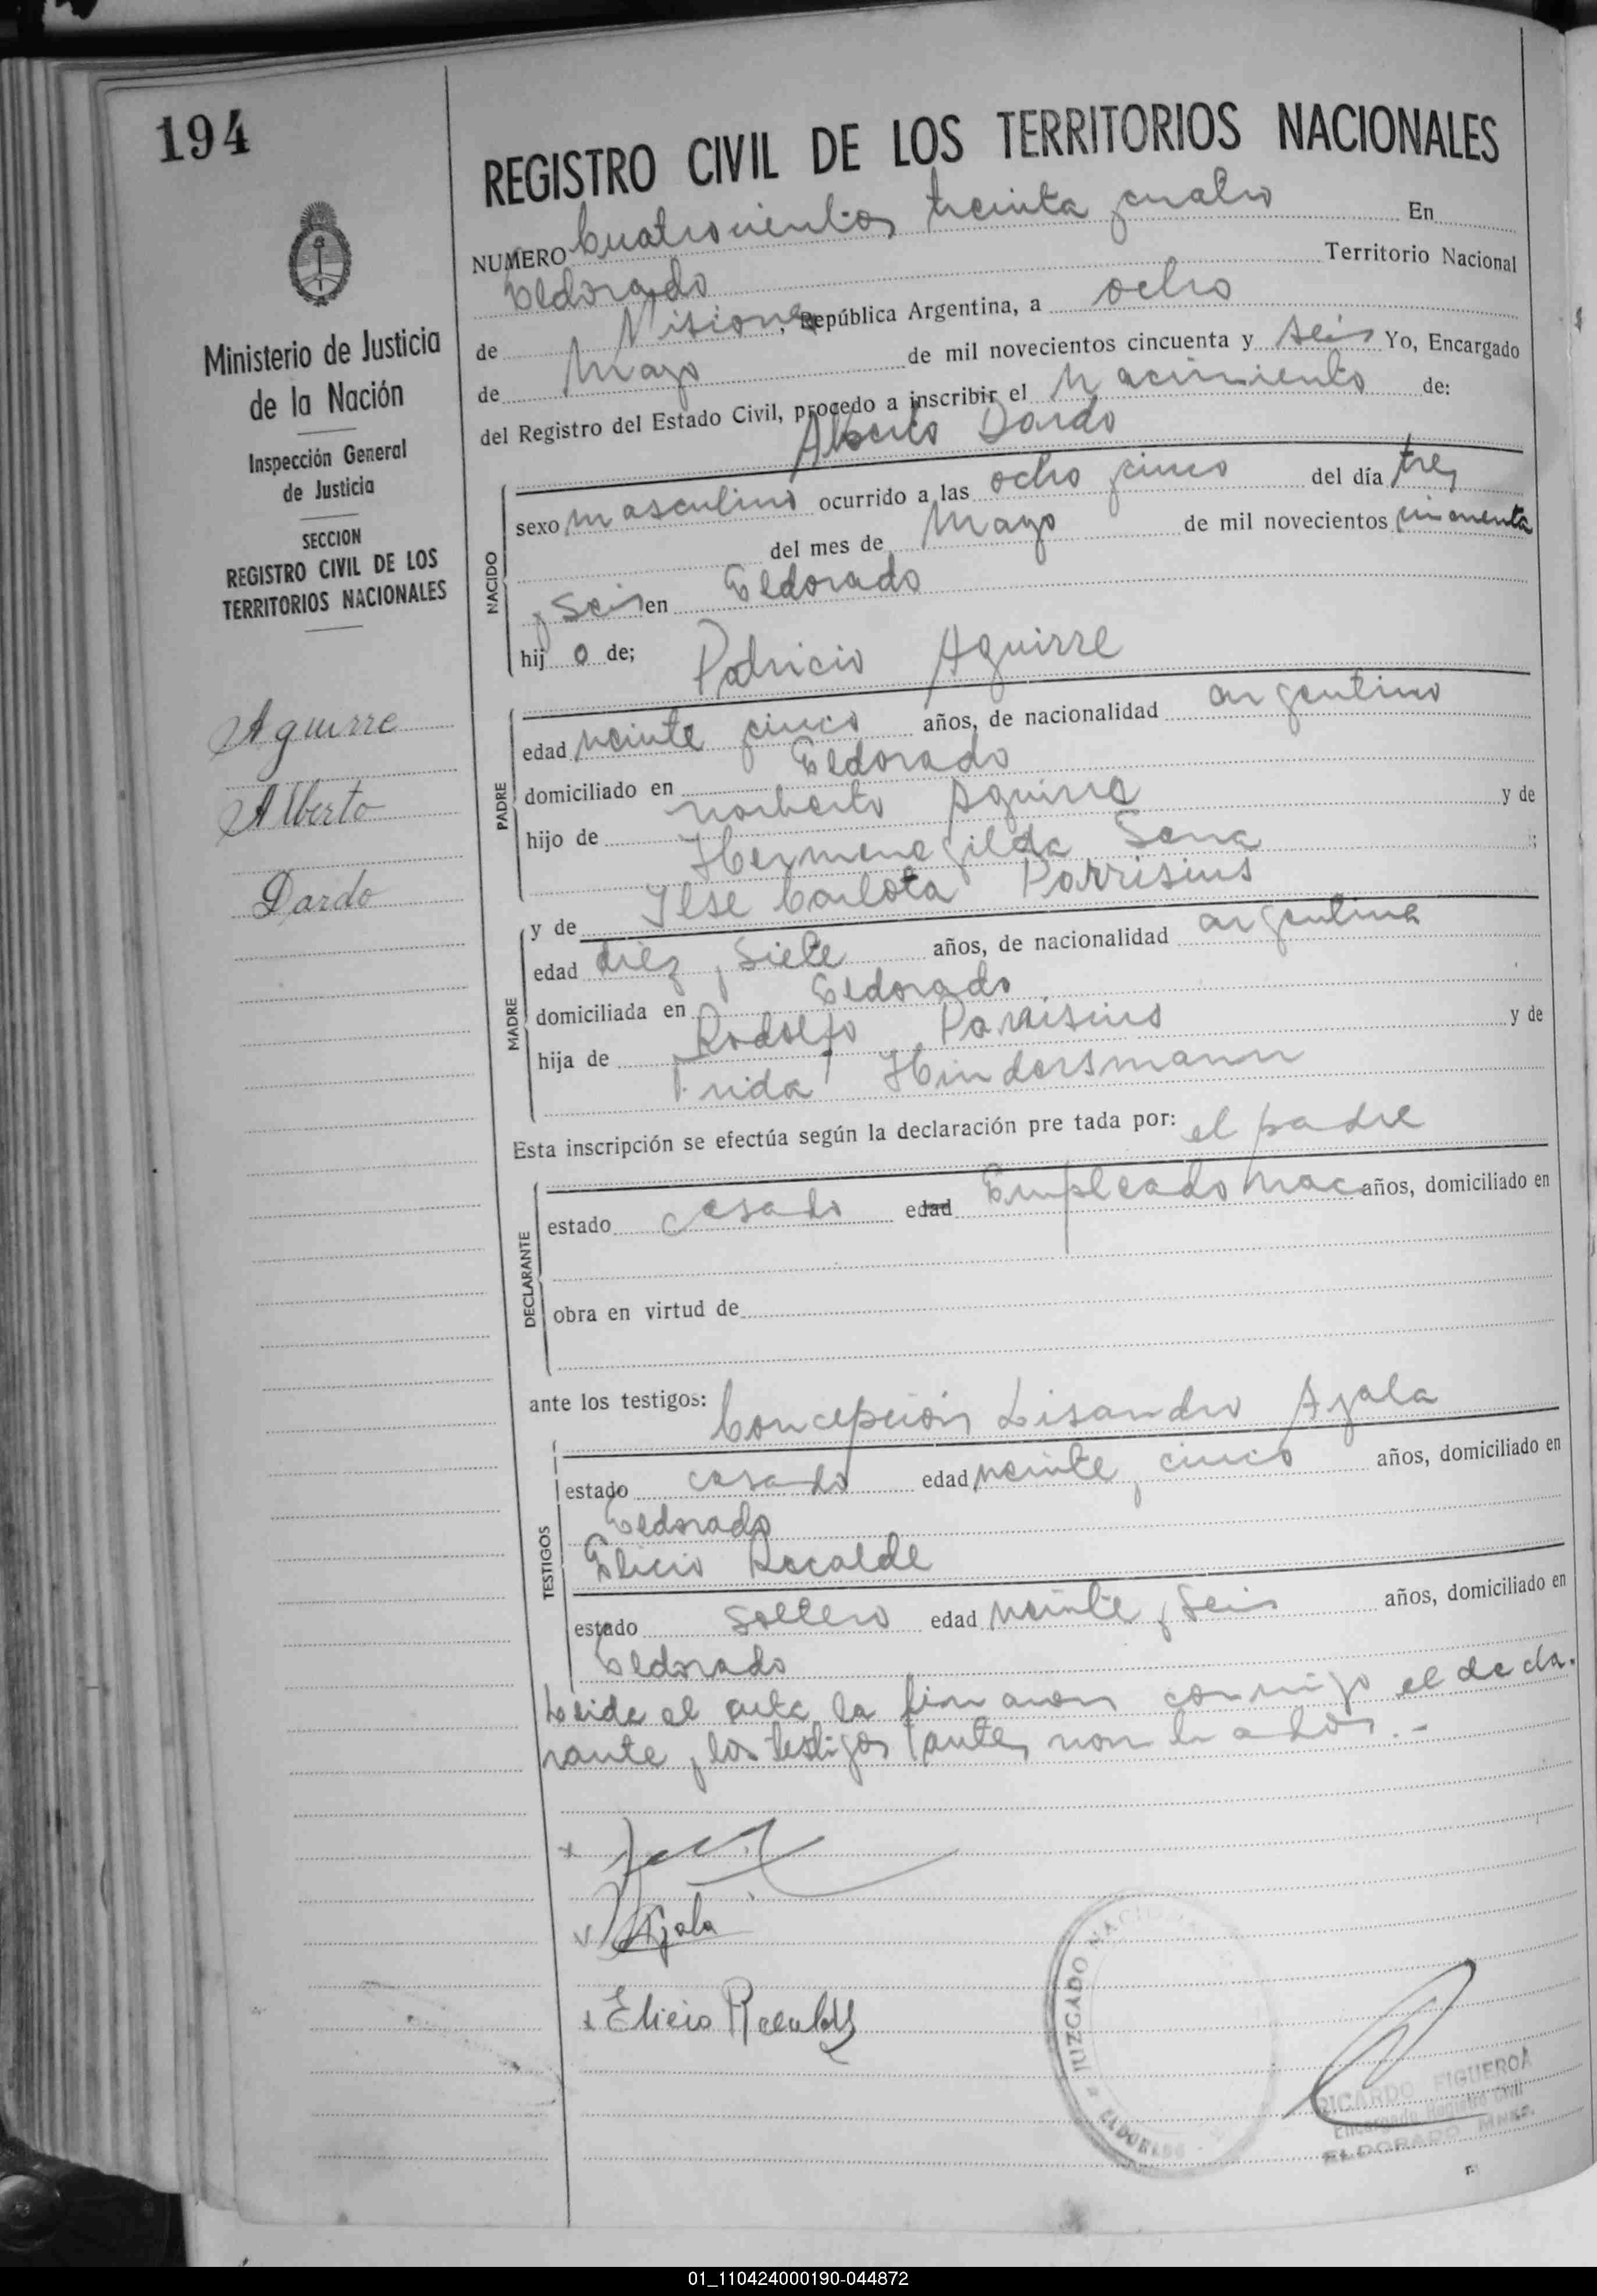 194
REGISTRO CIVIL DE LOS TERRITORIOS NACIONALES
Ministerio de Justicia
de la Nación
Inspección General
de Justicia
SECCION
REGISTRO CIVIL DE LOS
TERRITORIOS NACIONALES
Aguirre
Alberto
Dardo
NUMERO Cuatrocientos treinta y cuatro En
Eldorado Territorio Nacional
de Misiones, República Argentina, a ocho
de Mayo de mil novecientos cincuenta y seis Yo, Encargado
del Registro del Estado Civil, procedo a inscribir el Nacimiento de:
Alberto Dardo
NACIDO
sexo masculino ocurrido a las ocho y cinco del día tres
del mes de Mayo de mil novecientos cincuenta
y seis en Eldorado
hij o de; Patricio Aguirre
PADRE
edad veinte y cinco años, de nacionalidad argentino
domiciliado en Eldorado
hijo de Norberto Aguirre y de
Hermenegilda Sena ;
y de Ilse Carlota Parrisius
MADRE
edad diez y siete años, de nacionalidad argentina
domiciliada en Eldorado
hija de Rodolfo Parrisius y de
Frida Hindersmann
Esta inscripción se efectúa según la declaración pre tada por: el padre
DECLARANTE
estado casado edad Empleado nac años, domiciliado en
obra en virtud de
ante los testigos: Concepción Lisandro Ayala
TESTIGOS
estado casado edad veinte y cinco años, domiciliado en
Eldorado
Elicio Recalde
estado soltero edad veinte y seis años, domiciliado en
Eldorado
Leida el acta la firmaron conmigo el decla-
rante y los testigos antes nombrados.-
Ayala
Elicio Recalde
JUZGADO NACIONAL
ELDORADO
RICARDO FIGUEROA
Encargado Registro Civil
ELDORADO Mnes.
01_110424000190-044872